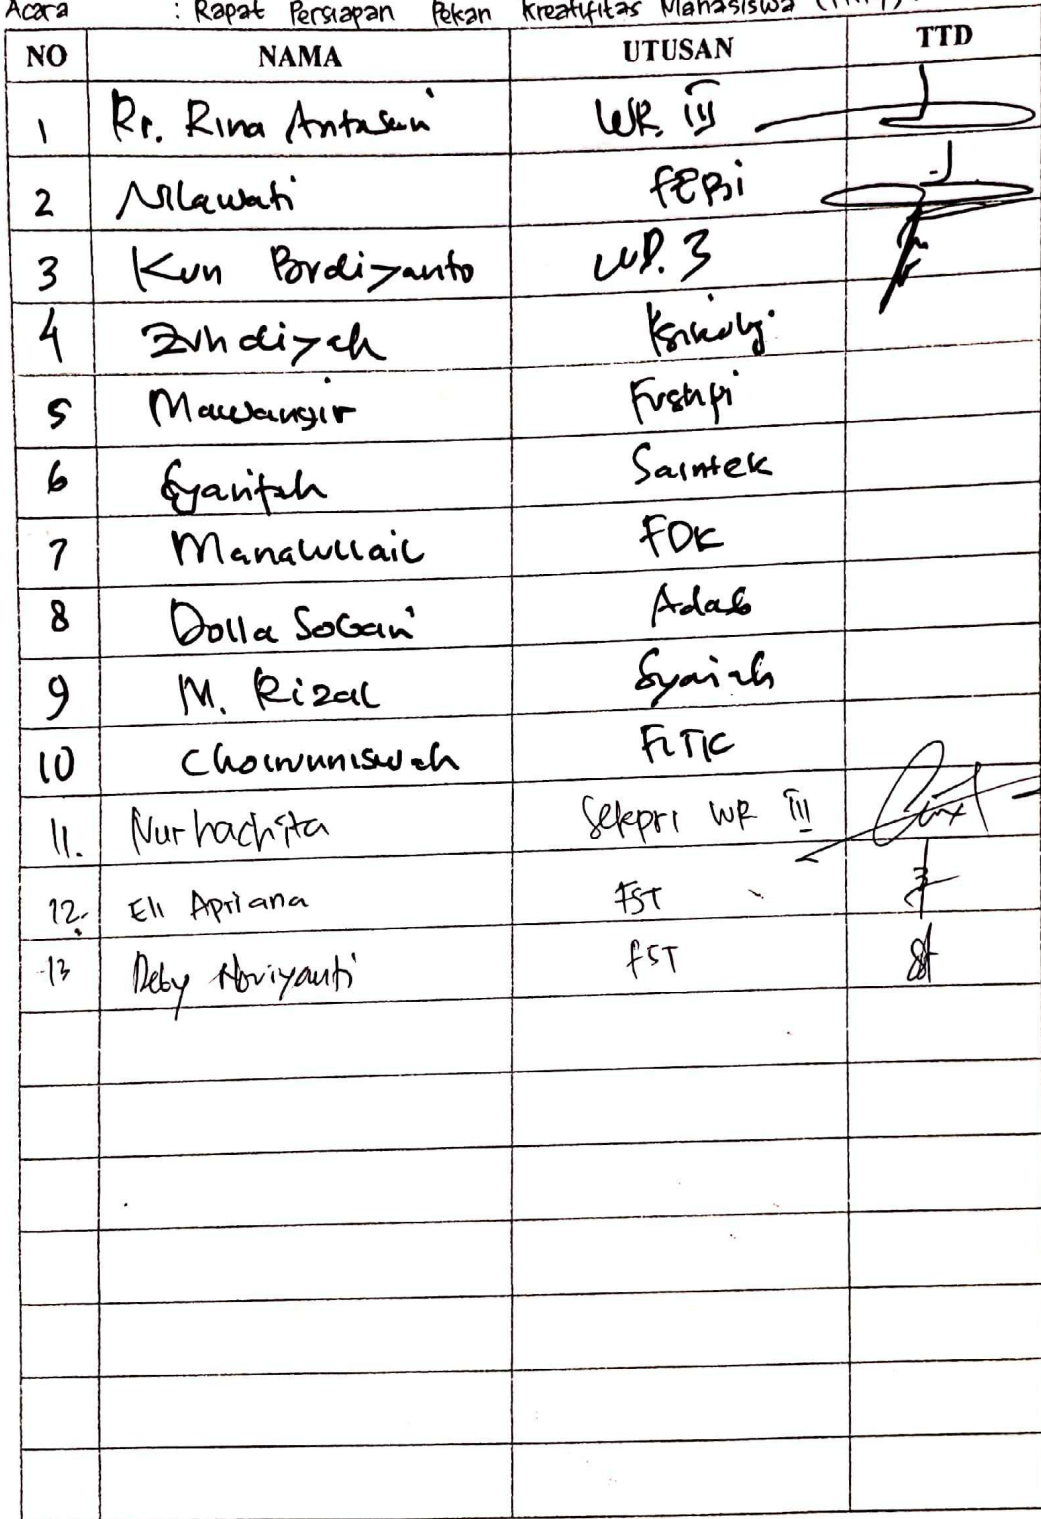 Acara : Rapat Persiapan Pekan Kreatifitas Mahasiswa
NO NAMA UTUSAN TTD
1 Rr. Rina Antasari WR. III
2 Nilawati FEBI
3 Kun Budiyanto WD. 3
4 Zuhdiyah Psikologi
5 Mawangir Fushpi
6 Syarifah Saintek
7 Manalullaili FDK
8 Dolla Sobari Adab
9 M. Rizal Syariah
10 Choirunniswah FITK
11. Nurhachita Sekpri WR III
12. Eli Apriana FST
13 Deby Noviyanti FST